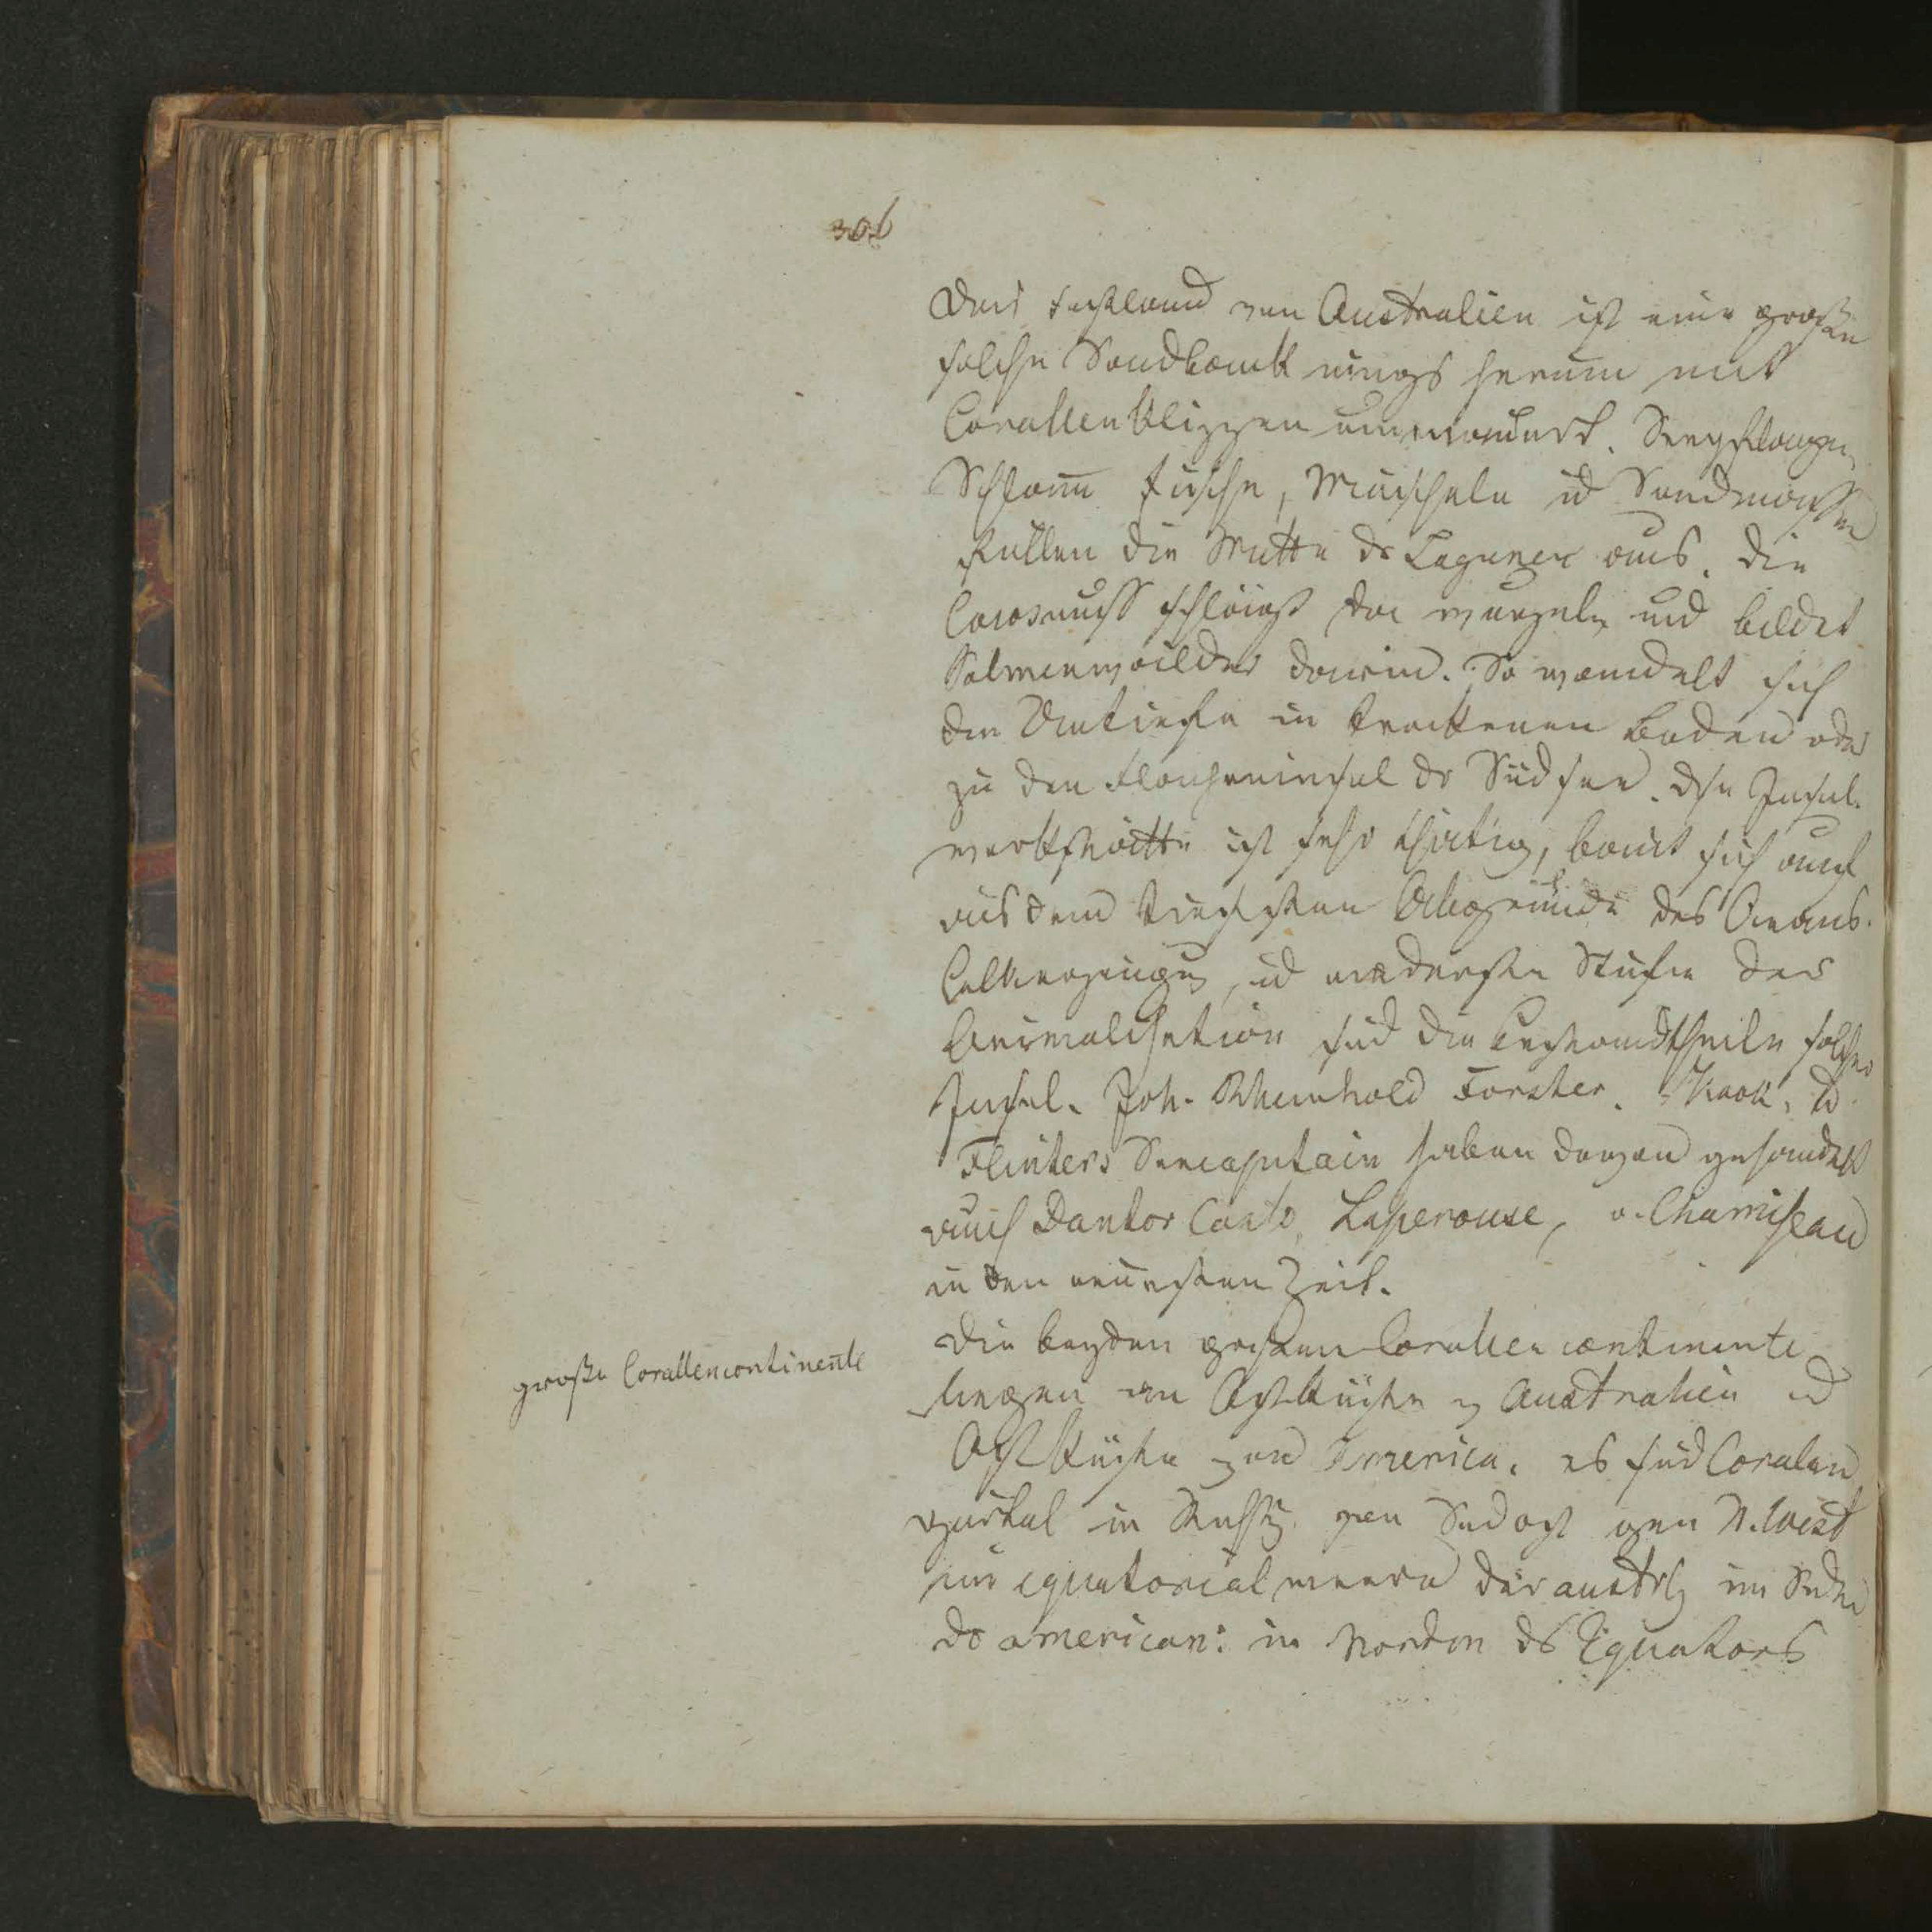 306
Das Festland von Australien ist eine große
solche Sandbank rings herum mit
Corallenklippen ummauert. Seepflanzen
Schlam Fische, Muscheln ud Sandmassen
füllen die Mitte dr Lagunen aus. Die
Cocosnuss schlägt da wurzeln und bildet
Palmenwälder darin. So wandelt sich
die Untiefe in trockenen Boden oder
zu den Flacheninsel dr Südsee. Dse Insel
werkstätte ist sehr thätig, baut sich auch
aus dem tiefsten Abgründe des Oceans.
Kalkerzeugung ud niederste Stufe der
Animalisation sind die Bestandtheile solcher
Insel. Joh. Rheinhold Forster. Kook, ud
Flinters Seecapitain haben davon gehandelt
auch Laperouse, v. Chamiseau
in den neuesten Zeit.
Die beyden großen Corallencontinente
große Corallencontinente
liegen an Ostküste v Australien ud
Ostküste von America. es sind Corallen
gürtel in von Sudost gen N.West
im equatorialmeere der austrl im Süden
dr american: in Norden ds Equators